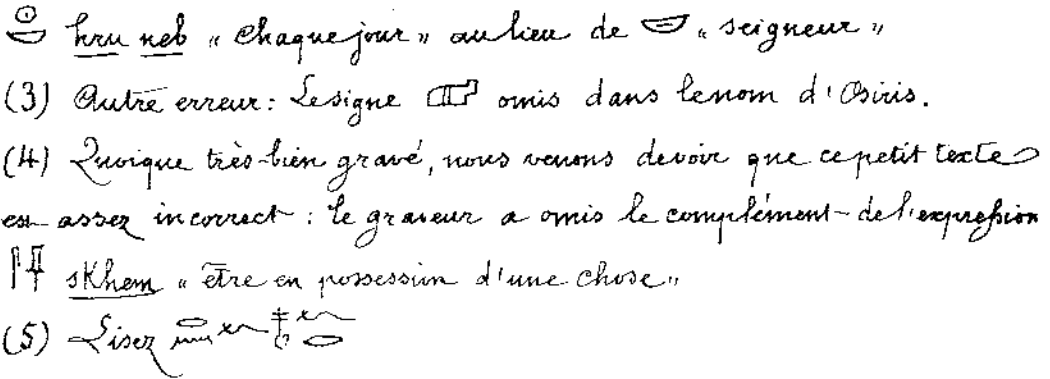 𓇳𓎟 hru neb « Chaque jour » au lieu de 𓎟 « seigneur »
(3) Autre erreur : Le signe omis dans le nom d'Osiris.
(4) Quoique très-bien gravé, nous venons de voir que ce petit texte
est assez incorrect : le graveur a omis le complément de l'expression
sKhem « être en possession d'une chose »
(5) Lisez 𓂋𓈖𓆑𓄤𓆑𓂋